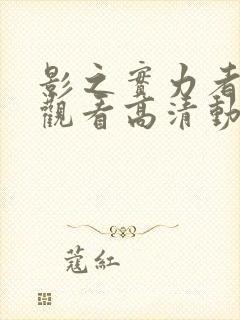 影之實力者
觀看高清動
蔻紅